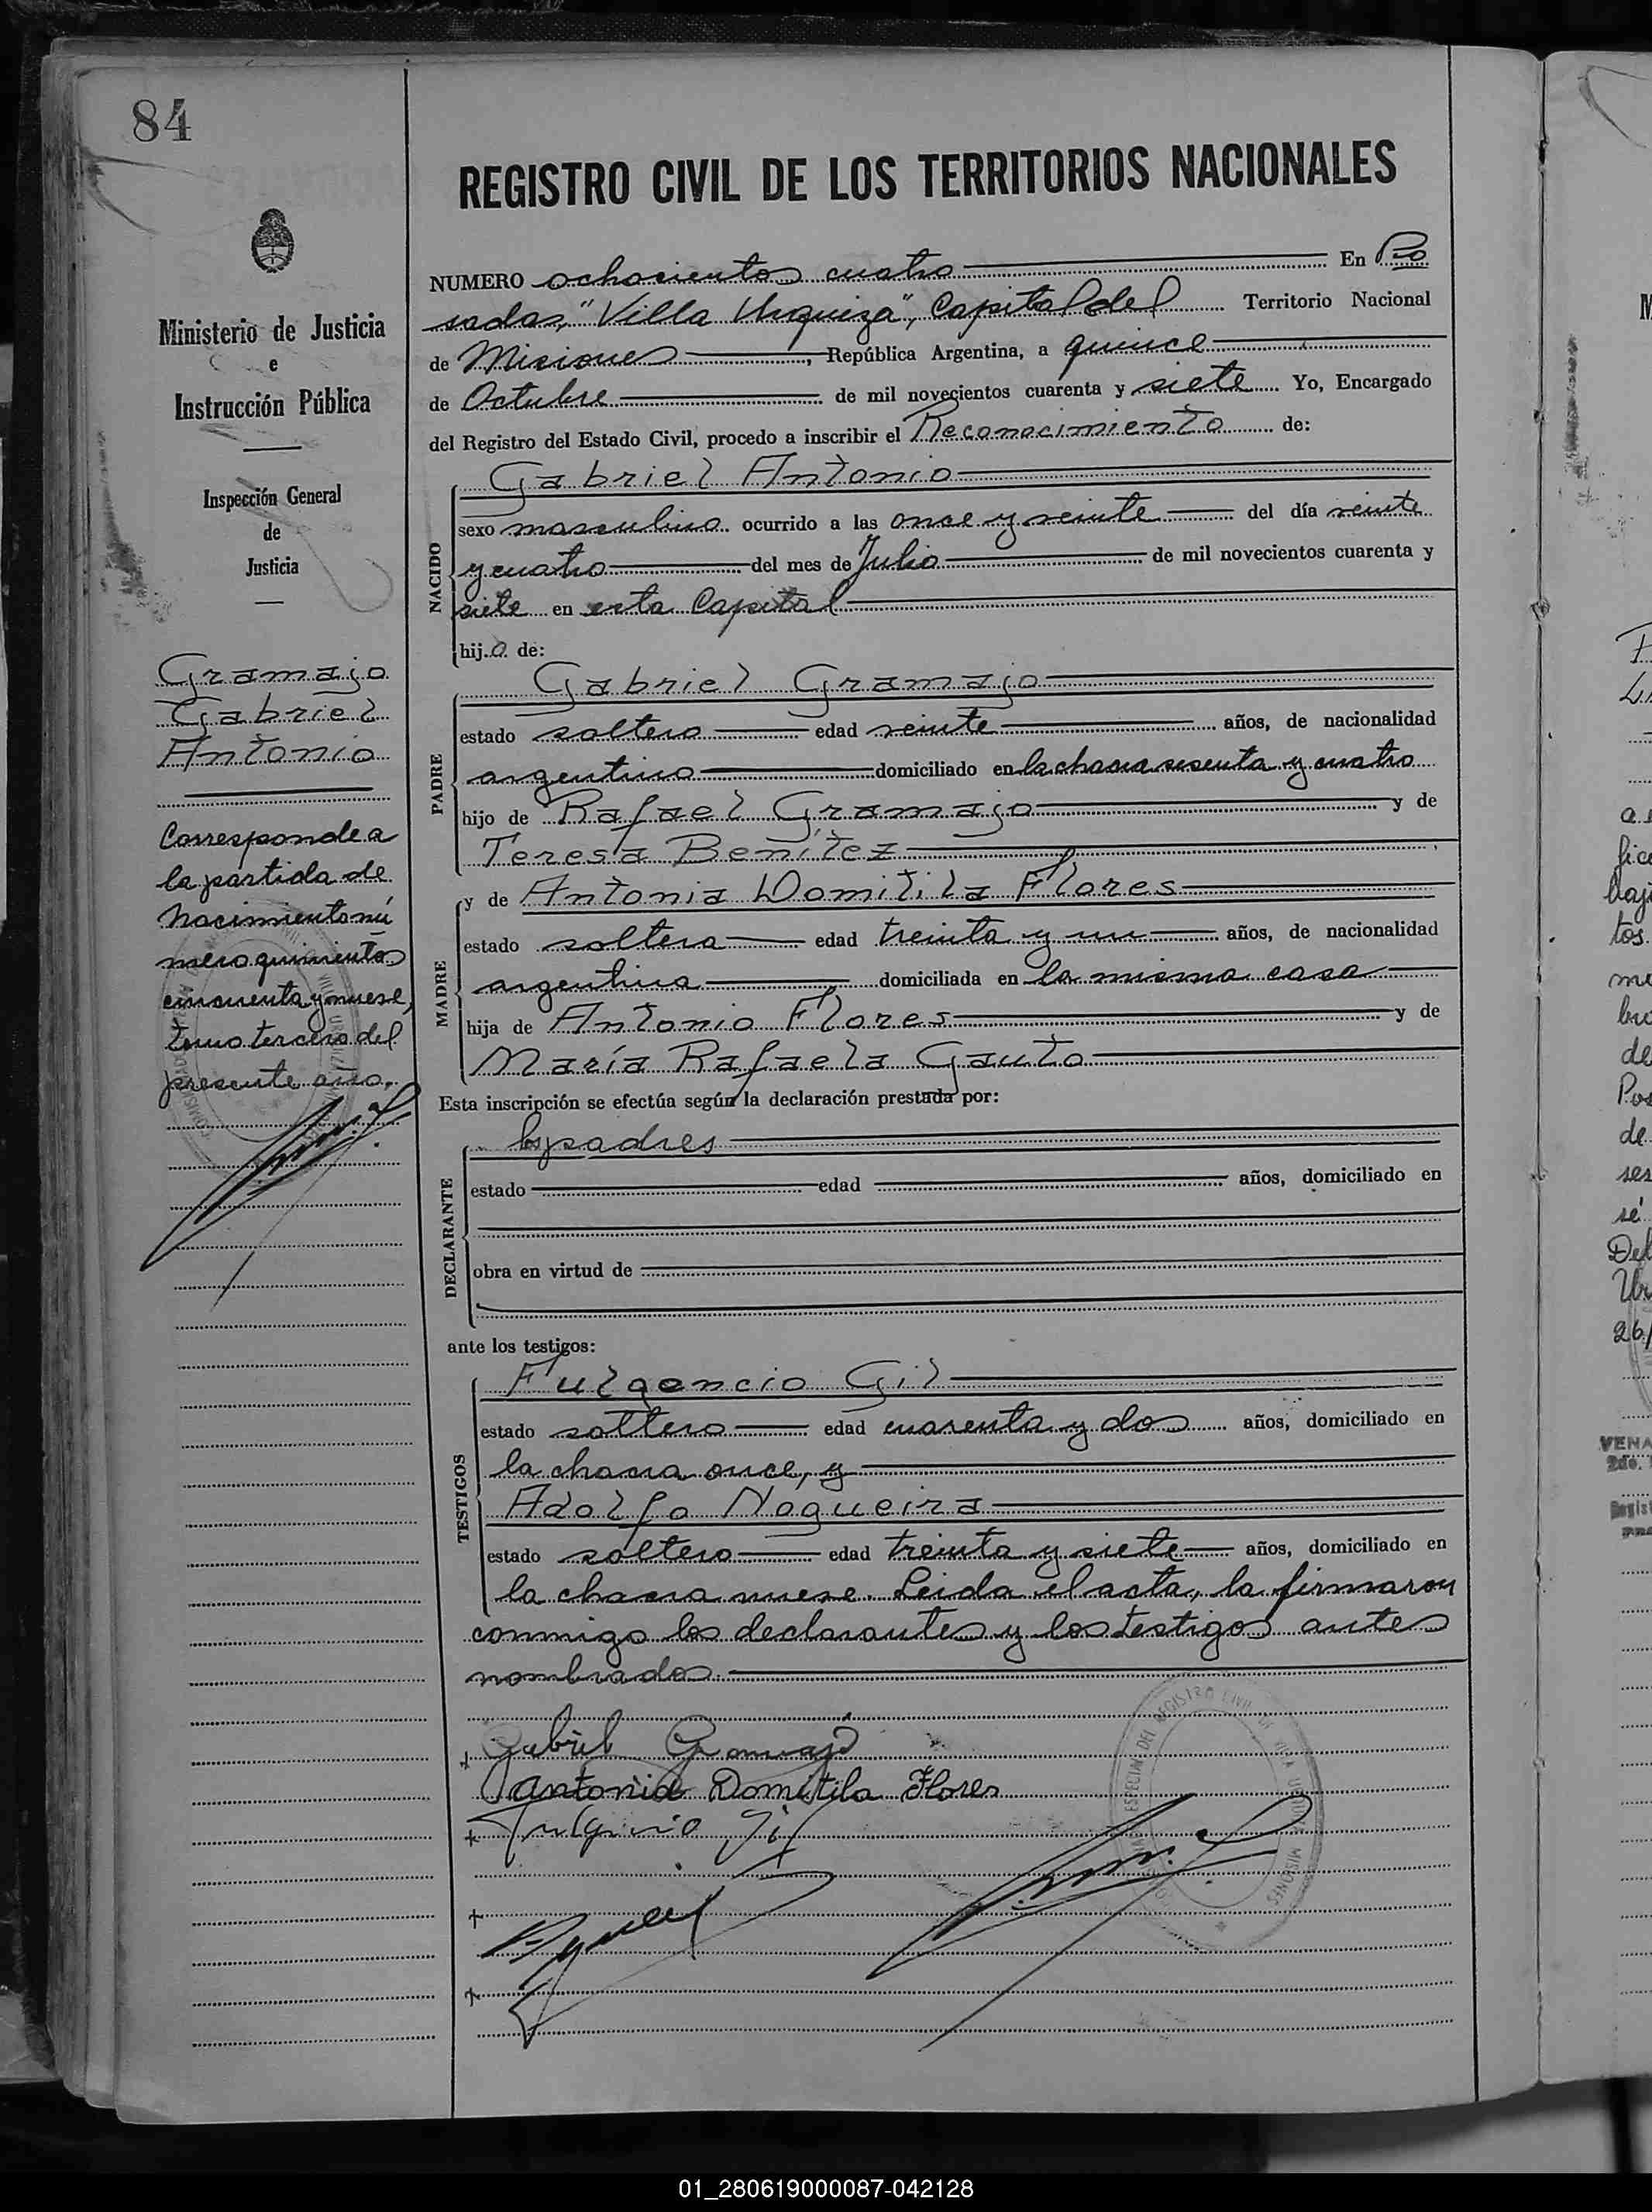 84
REGISTRO CIVIL DE LOS TERRITORIOS NACIONALES
Ministerio de Justicia
e
Instrucción Pública
Inspección General
de
Justicia
Gramajo
Gabriel
Antonio
Corresponde a
la partida de
Nacimiento nú
mero quinientos
cincuenta y nueve,
tomo tercero del
presente año.
NUMERO ochocientos cuatro En Po
sadas, "Villa Urquiza", Capital del Territorio Nacional
de Misiones, República Argentina, a quince
de Octubre de mil novecientos cuarenta y siete Yo, Encargado
del Registro del Estado Civil, procedo a inscribir el Reconocimiento de:
NACIDO
Gabriel Antonio
sexo masculino ocurrido a las once y veinte del día veinte
y cuatro del mes de Julio de mil novecientos cuarenta y
siete en esta Capital
hijo de:
PADRE
Gabriel Gramajo
estado soltero edad veinte años, de nacionalidad
argentino domiciliado en la chacra sesenta y cuatro
hijo de Rafael Gramajo y de
Teresa Benítez
MADRE
y de Antonia Domitila Flores
estado soltera edad treinta y un años, de nacionalidad
argentina domiciliada en la misma casa
hija de Antonio Flores y de
María Rafaela Gauto
Esta inscripción se efectúa según la declaración prestada por:
DECLARANTE
los padres
estado edad años, domiciliado en
obra en virtud de
ante los testigos:
TESTIGOS
Fulgencio Gil
estado soltero edad cuarenta y dos años, domiciliado en
la chacra once, y
Adolfo Nogueira
estado soltero edad treinta y siete años, domiciliado en
la chacra nueve. Leida el acta, la firmaron
conmigo los declarantes y los testigos antes
nombrados
Gabriel Gramajo
Antonia Domitila Flores
Fulgencio Gil
ESPECIAL DEL REGISTRO CIVIL VILLA URQUIZA MISIONES
01_280619000087-042128